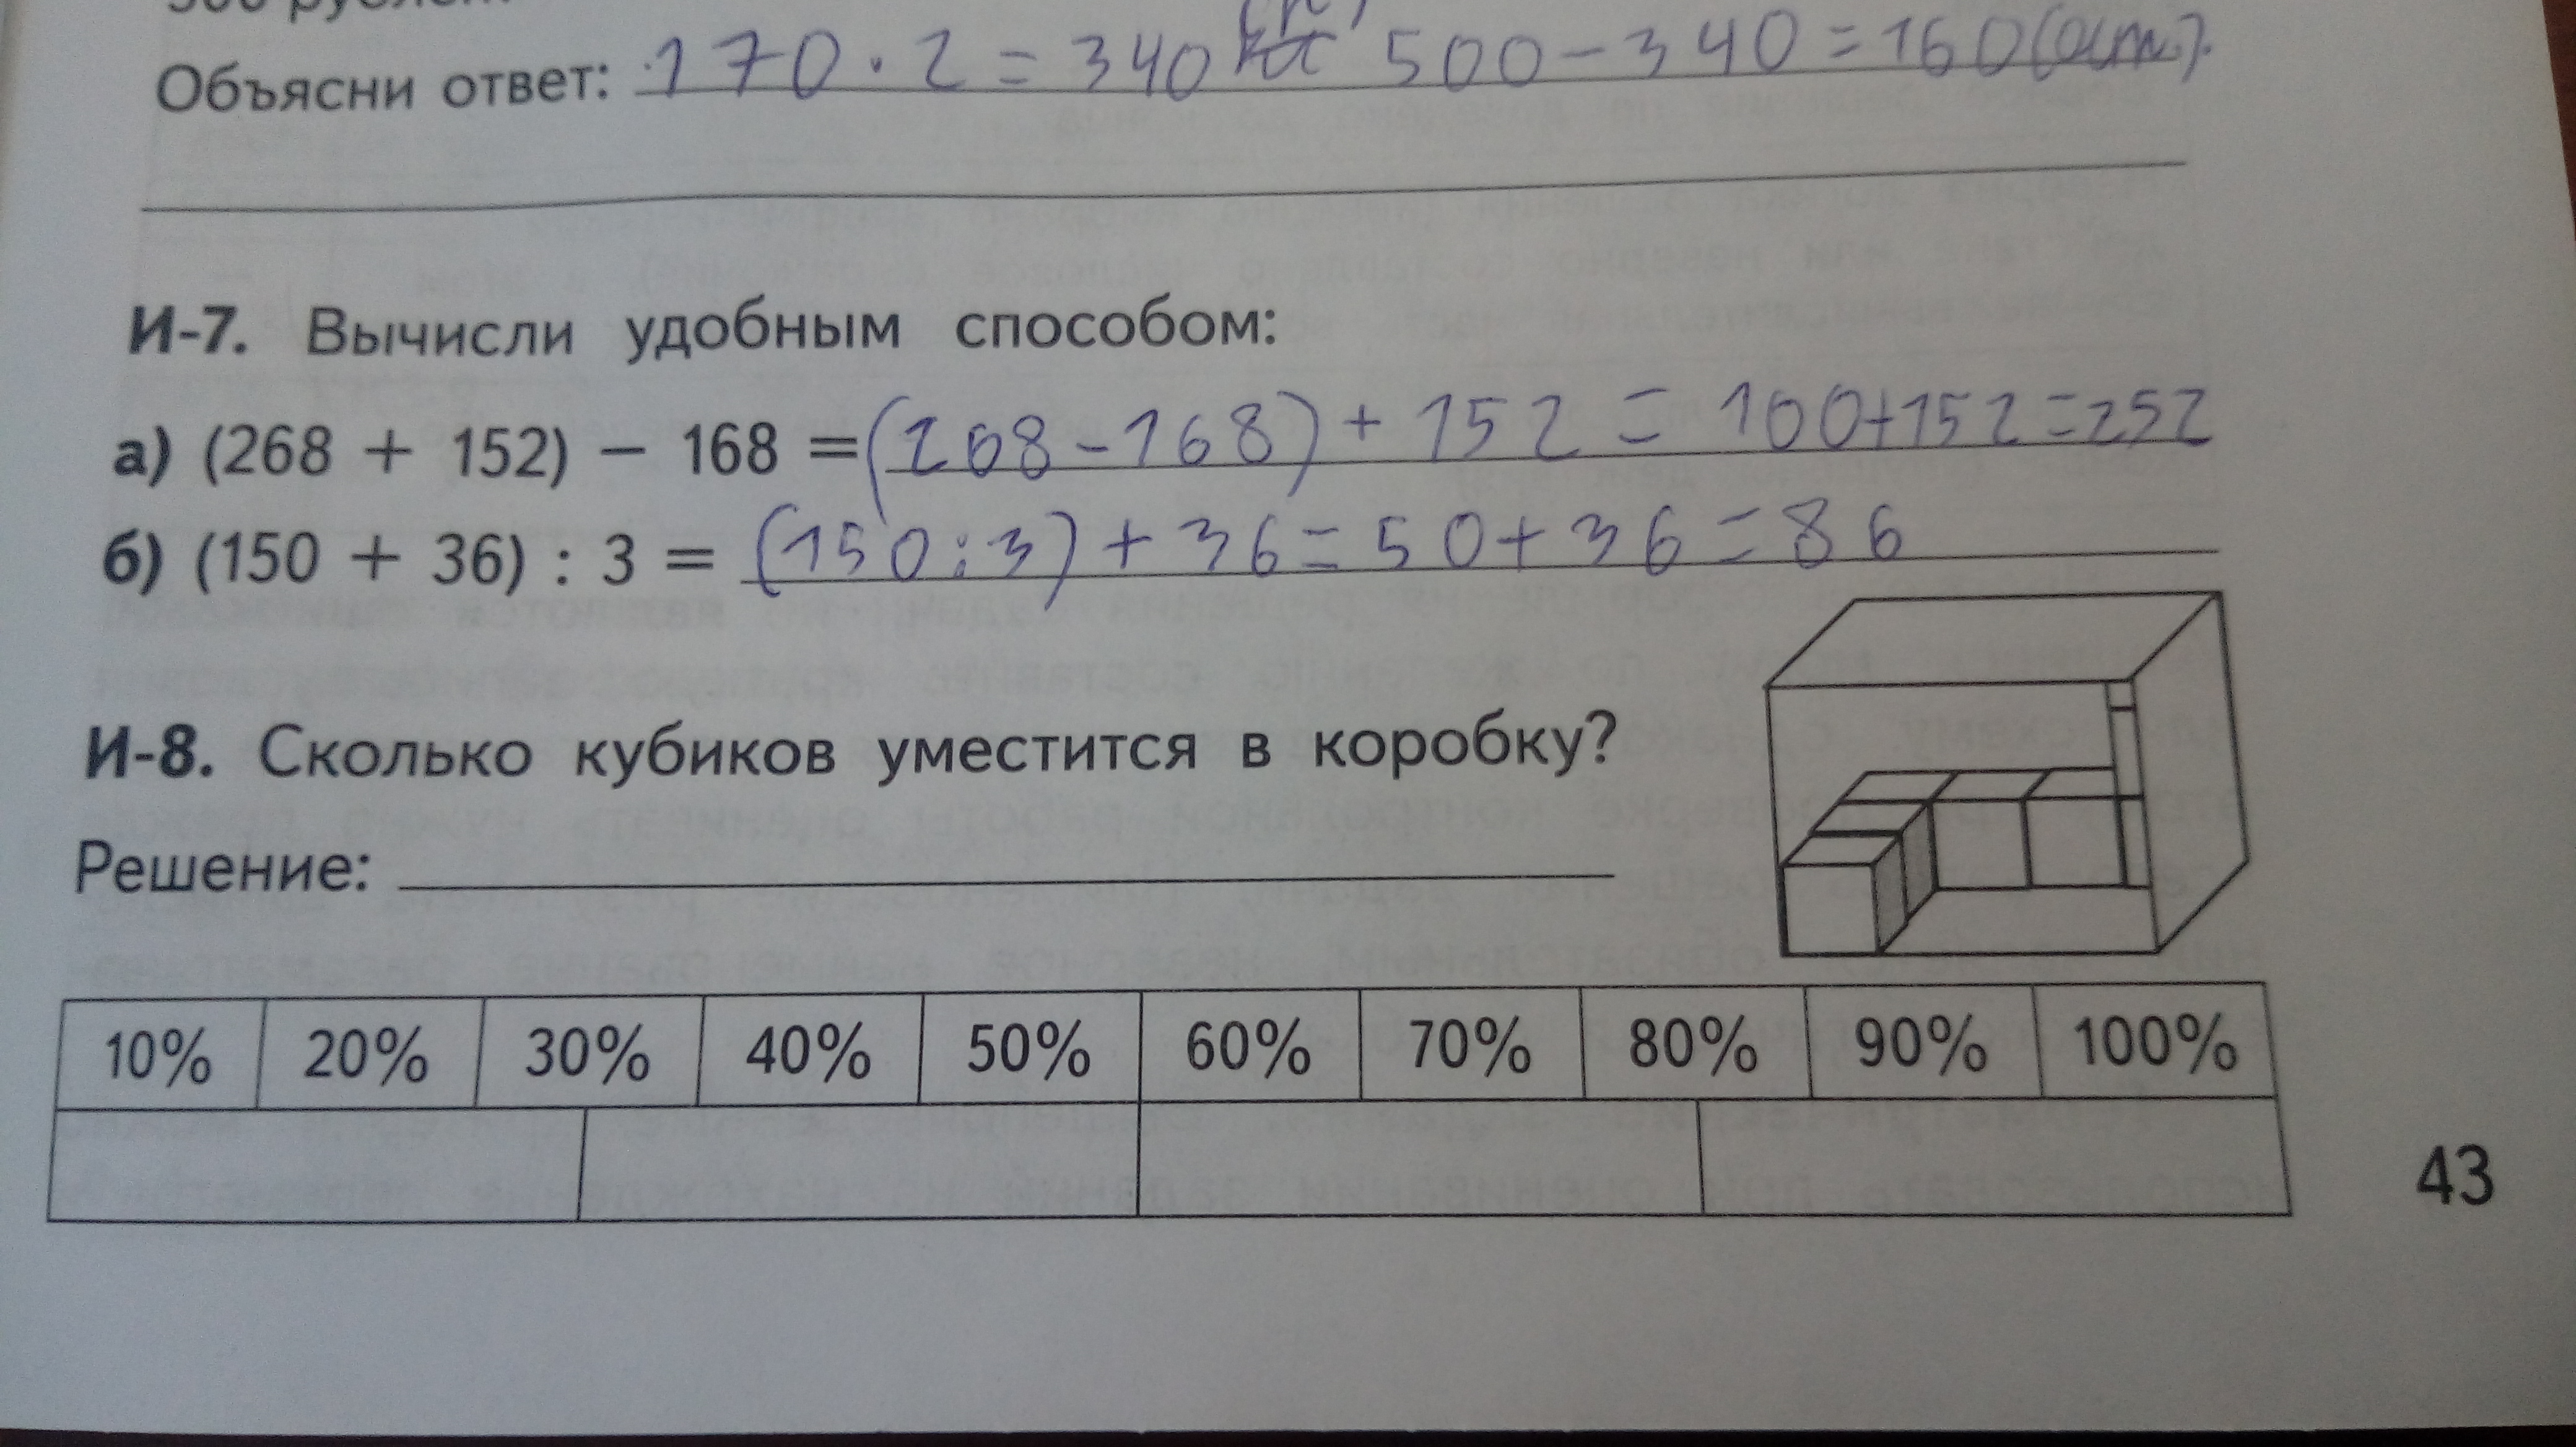 Объясни ответ: 170 · 2 = 340 500 - 340 = 160 (ост.).
И-7. Вычисли удобным способом:
а) (268 + 152) − 168 = (268 - 168) + 152 = 100 + 152 = 252
б) (150 + 36) : 3 = (150 : 3) + 36 = 50 + 36 = 86
И-8. Сколько кубиков уместится в коробку?
Решение:
10% 20% 30% 40% 50% 60% 70% 80% 90% 100%
43